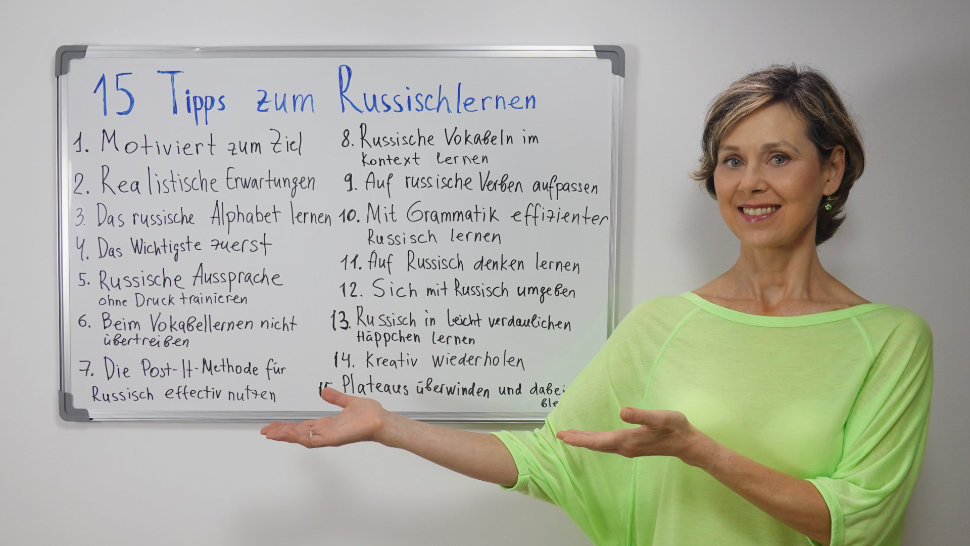 15 Tipps zum Russischlernen
1. Motiviert zum Ziel
2. Realistische Erwartungen
3. Das russische Alphabet lernen
4. Das Wichtigste zuerst
5. Russische Aussprache
ohne Druck trainieren
6. Beim Vokabellernen nicht
übertreiben
7. Die Post-It-Methode für
Russisch effectiv nutzen
8. Russische Vokabeln im
Kontext lernen
9. Auf russische Verben aufpassen
10. Mit Grammatik effizienter
Russisch lernen
11. Auf Russisch denken lernen
12. Sich mit Russisch umgeben
13. Russisch in leicht verdaulichen
Häppchen lernen
14. Kreativ wiederholen
15. Plateaus überwinden und dabei